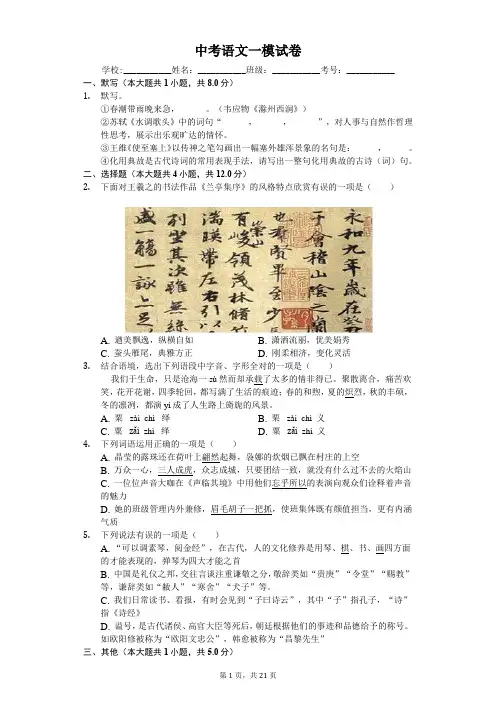 中考语文一模试卷
学校:__________姓名：__________班级：__________考号：__________
一、默写（本大题共1小题，共8.0分）
1. 默写。
①春潮带雨晚来急，______。（韦应物《滁州西涧》）
②苏轼《水调歌头》中的词句“______，______，______”，对人事与自然作哲理
性思考，展示出乐观旷达的情怀。
③王维《使至塞上》以传神之笔勾画出一幅塞外雄浑景象的名句是：______，______。
④化用典故是古代诗词的常用表现手法，请写出一整句化用典故的古诗（词）句。
二、选择题（本大题共4小题，共12.0分）
2. 下面对王羲之的书法作品《兰亭集序》的风格特点欣赏有误的一项是（ ）
永和九年歲在癸
于會稽山陰之蘭
也羣賢畢至少
有崇山峻領茂林脩竹
湍暎帶左右引以
列坐其次雖無絲
盛一觴一詠上足
A. 遒美飘逸，纵横自如 B. 潇洒流丽，优美娟秀
C. 蚕头雁尾，典雅方正 D. 刚柔相济，变化灵活
3. 结合语境，选出下列语段中字音、字形全对的一项是（ ）
我们于生命，只是沧海一sù然而却承载了太多的情非得已。聚散离合，痛苦欢
笑，花开花谢，四季轮回，都写满了生活的痕迹；春的和煦，夏的炽烈，秋的丰硕，
冬的凛冽，都演yì成了人生路上旖旎的风景。
A. 粟 zài chì 绎 B. 栗 zài chì 义
C. 粟 zǎi zhì 绎 D. 粟 zǎi zhì 义
4. 下列词语运用正确的一项是（ ）
A. 晶莹的露珠还在荷叶上翩然起舞，袅娜的炊烟已飘在村庄的上空
B. 万众一心，三人成虎，众志成城，只要团结一致，就没有什么过不去的火焰山
C. 一位位声音大咖在《声临其境》中用他们忘乎所以的表演向观众们诠释着声音
的魅力
D. 她的班级管理内外兼修，眉毛胡子一把抓，使班集体既有颜值担当，更有内涵
气质
5. 下列说法有误的一项是（ ）
A. “可以调素琴，阅金经”，在古代，人的文化修养是用琴、棋、书、画四方面
的才能表现的，弹琴为四大才能之首
B. 中国是礼仪之邦，交往言谈注重谦敬之分，敬辞类如“贵庚”“令堂”“赐教”
等，谦辞类如“敝人”“寒舍”“犬子”等。
C. 我们日常读书、看报，有时会见到“子曰诗云”，其中“子”指孔子，“诗”
指《诗经》
D. 谥号，是古代诸侯、高官大臣等死后，朝廷根据他们的事迹和品德给予的称号。
如欧阳修被称为“欧阳文忠公”，韩愈被称为“昌黎先生”
三、其他（本大题共1小题，共5.0分）
第1页，共21页